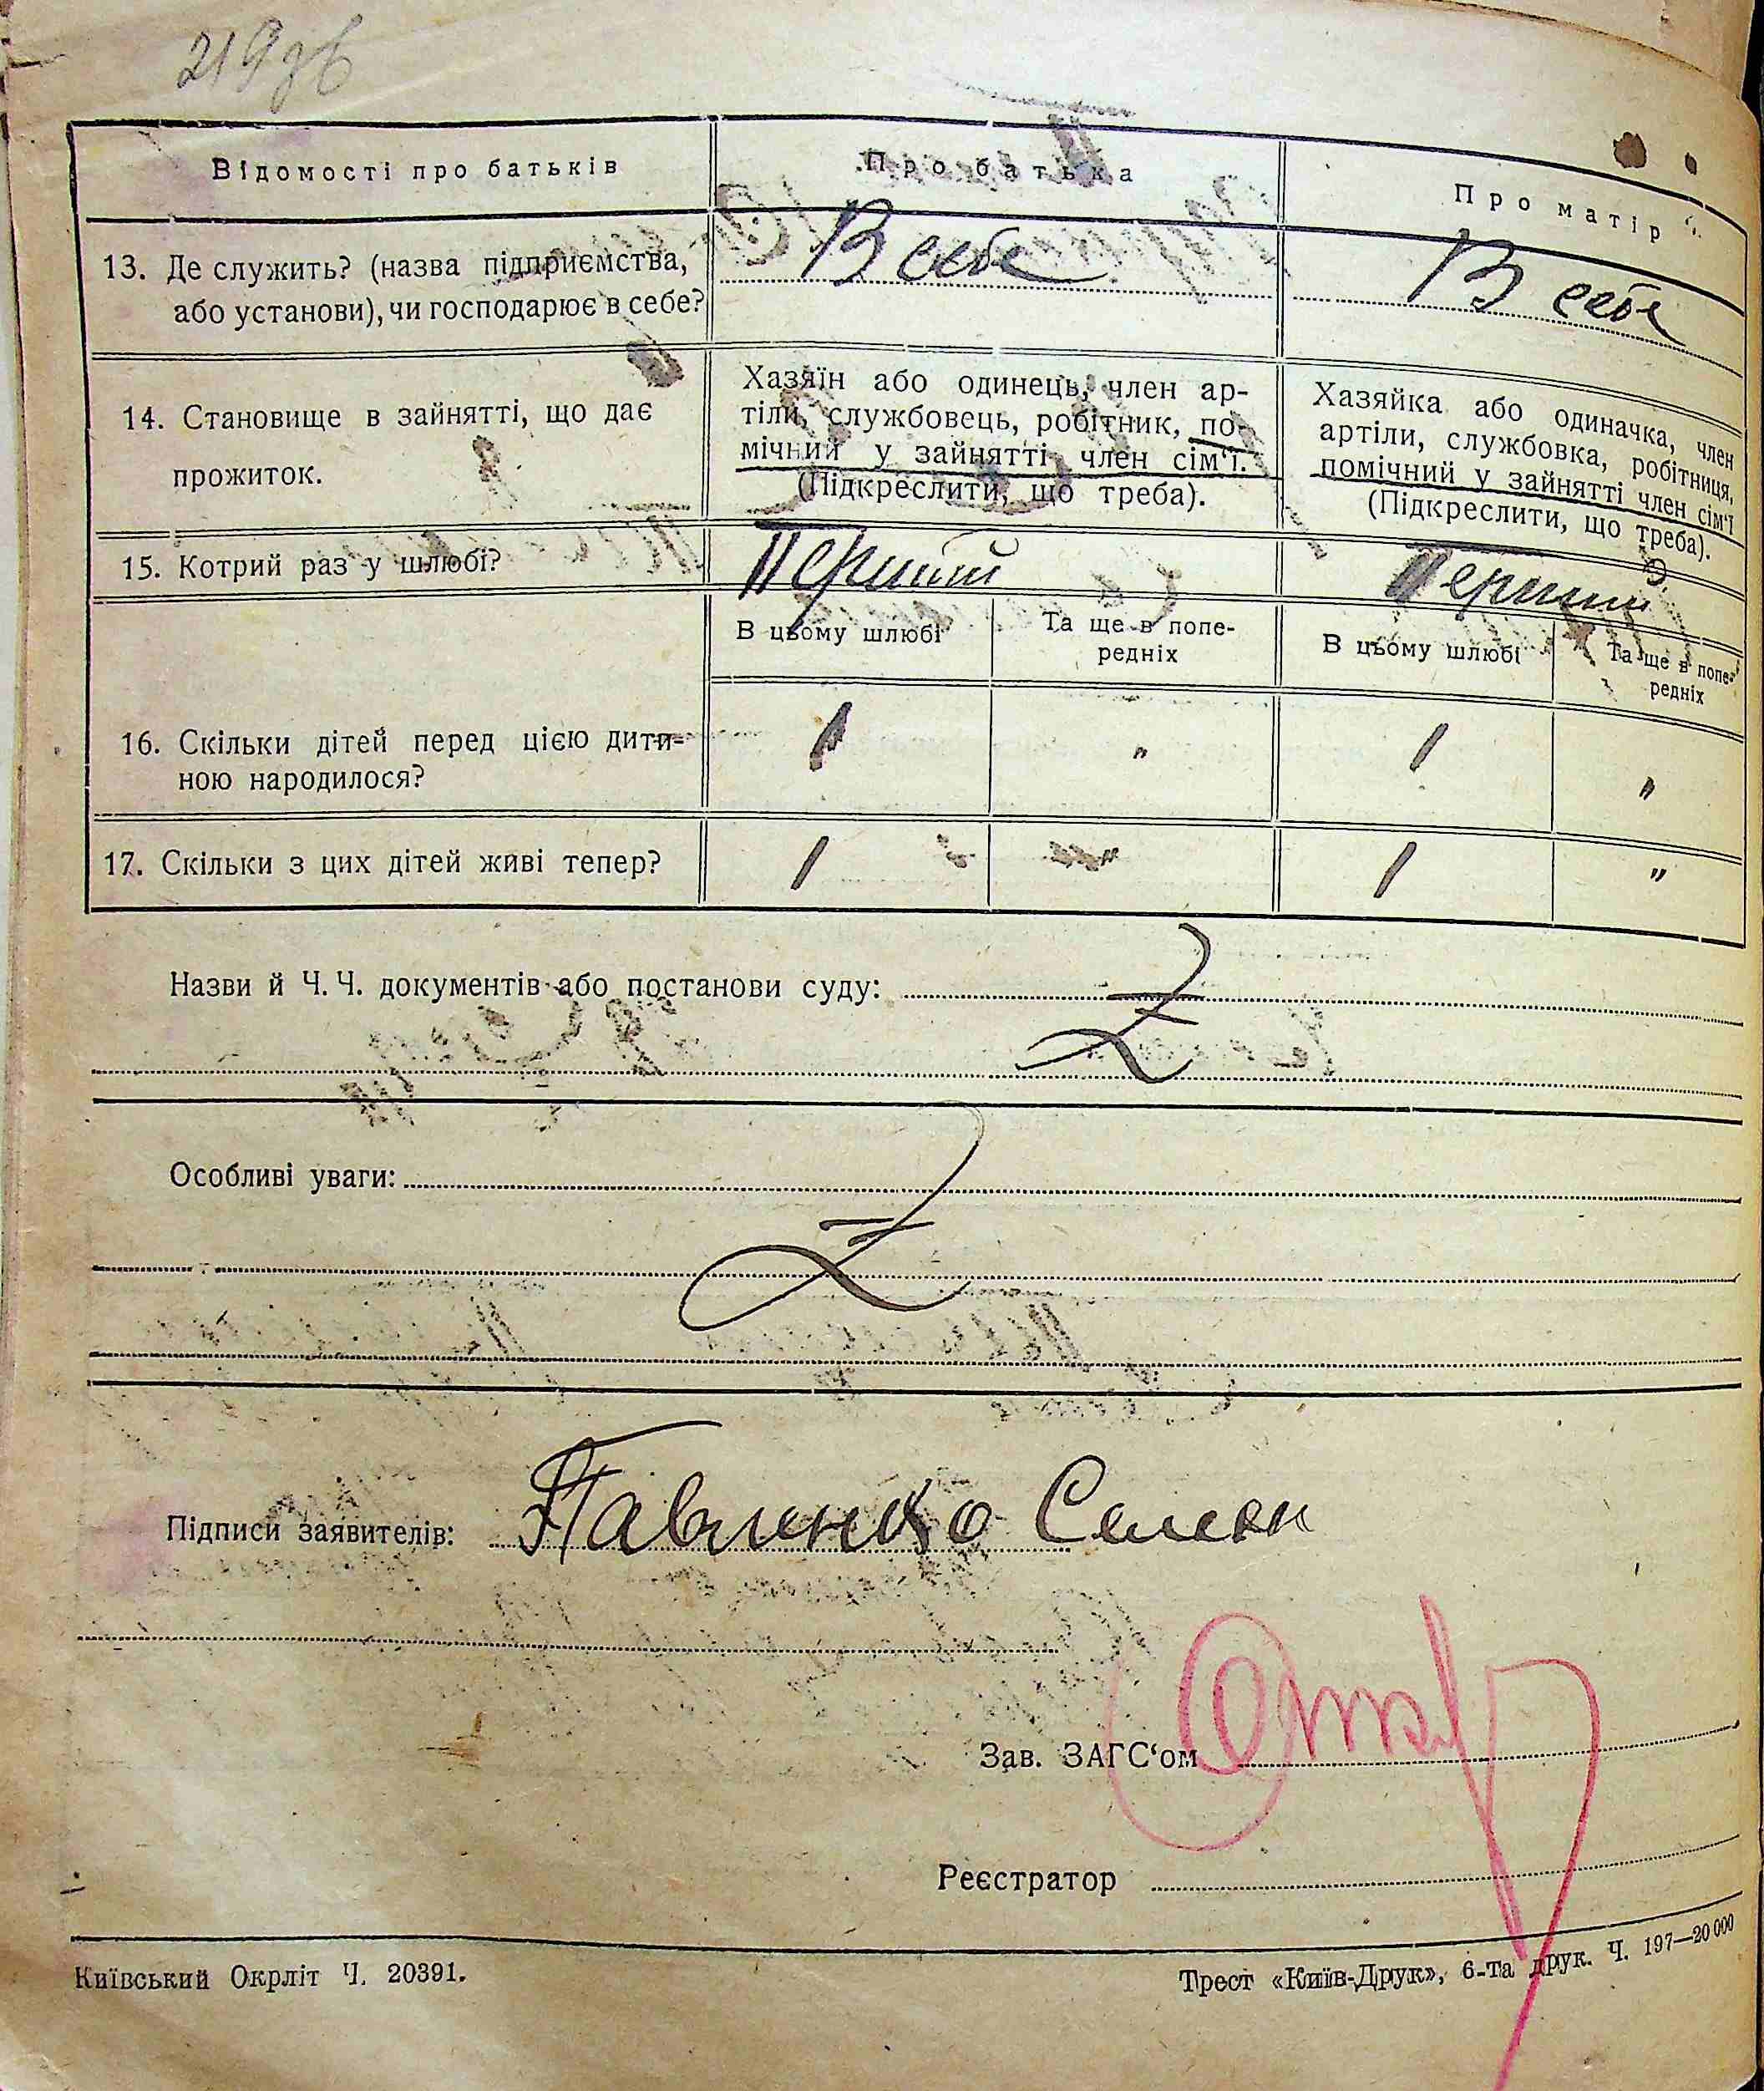 219зв
Відомості про батьків
Про батька
Про матір
13. Де служить? (назва підприємства,
або установи), чи господарює в себе?
В себе
В себе
14. Становище в зайнятті, що дає
прожиток.
Хазяїн або одинець, член ар-
тіли, службовець, робітник, по-
мічний у зайнятті член сім'ї.
(Підкреслити, що треба).
Хазяйка або одиначка, член
артіли, службовка, робітниця,
помічний у зайнятті член сім'ї
(Підкреслити, що треба).
15. Котрий раз у шлюбі?
Перший
Перший
В цьому шлюбі
Та ще в попе-
редніх
В цьому шлюбі
Та ще в попе-
редніх
16. Скільки дітей перед цією дити-
ною народилося?
1
"
1
"
17. Скільки з цих дітей живі тепер?
1
"
1
"
Назви й Ч. Ч. документів або постанови суду:
Особливі уваги:
Підписи заявителів:
Семен
Зав. ЗАГС'ом
Реєстратор
Київський Окрліт Ч. 20391.
Трест «Київ-Друк», 6-та друк. Ч. 197—20 000